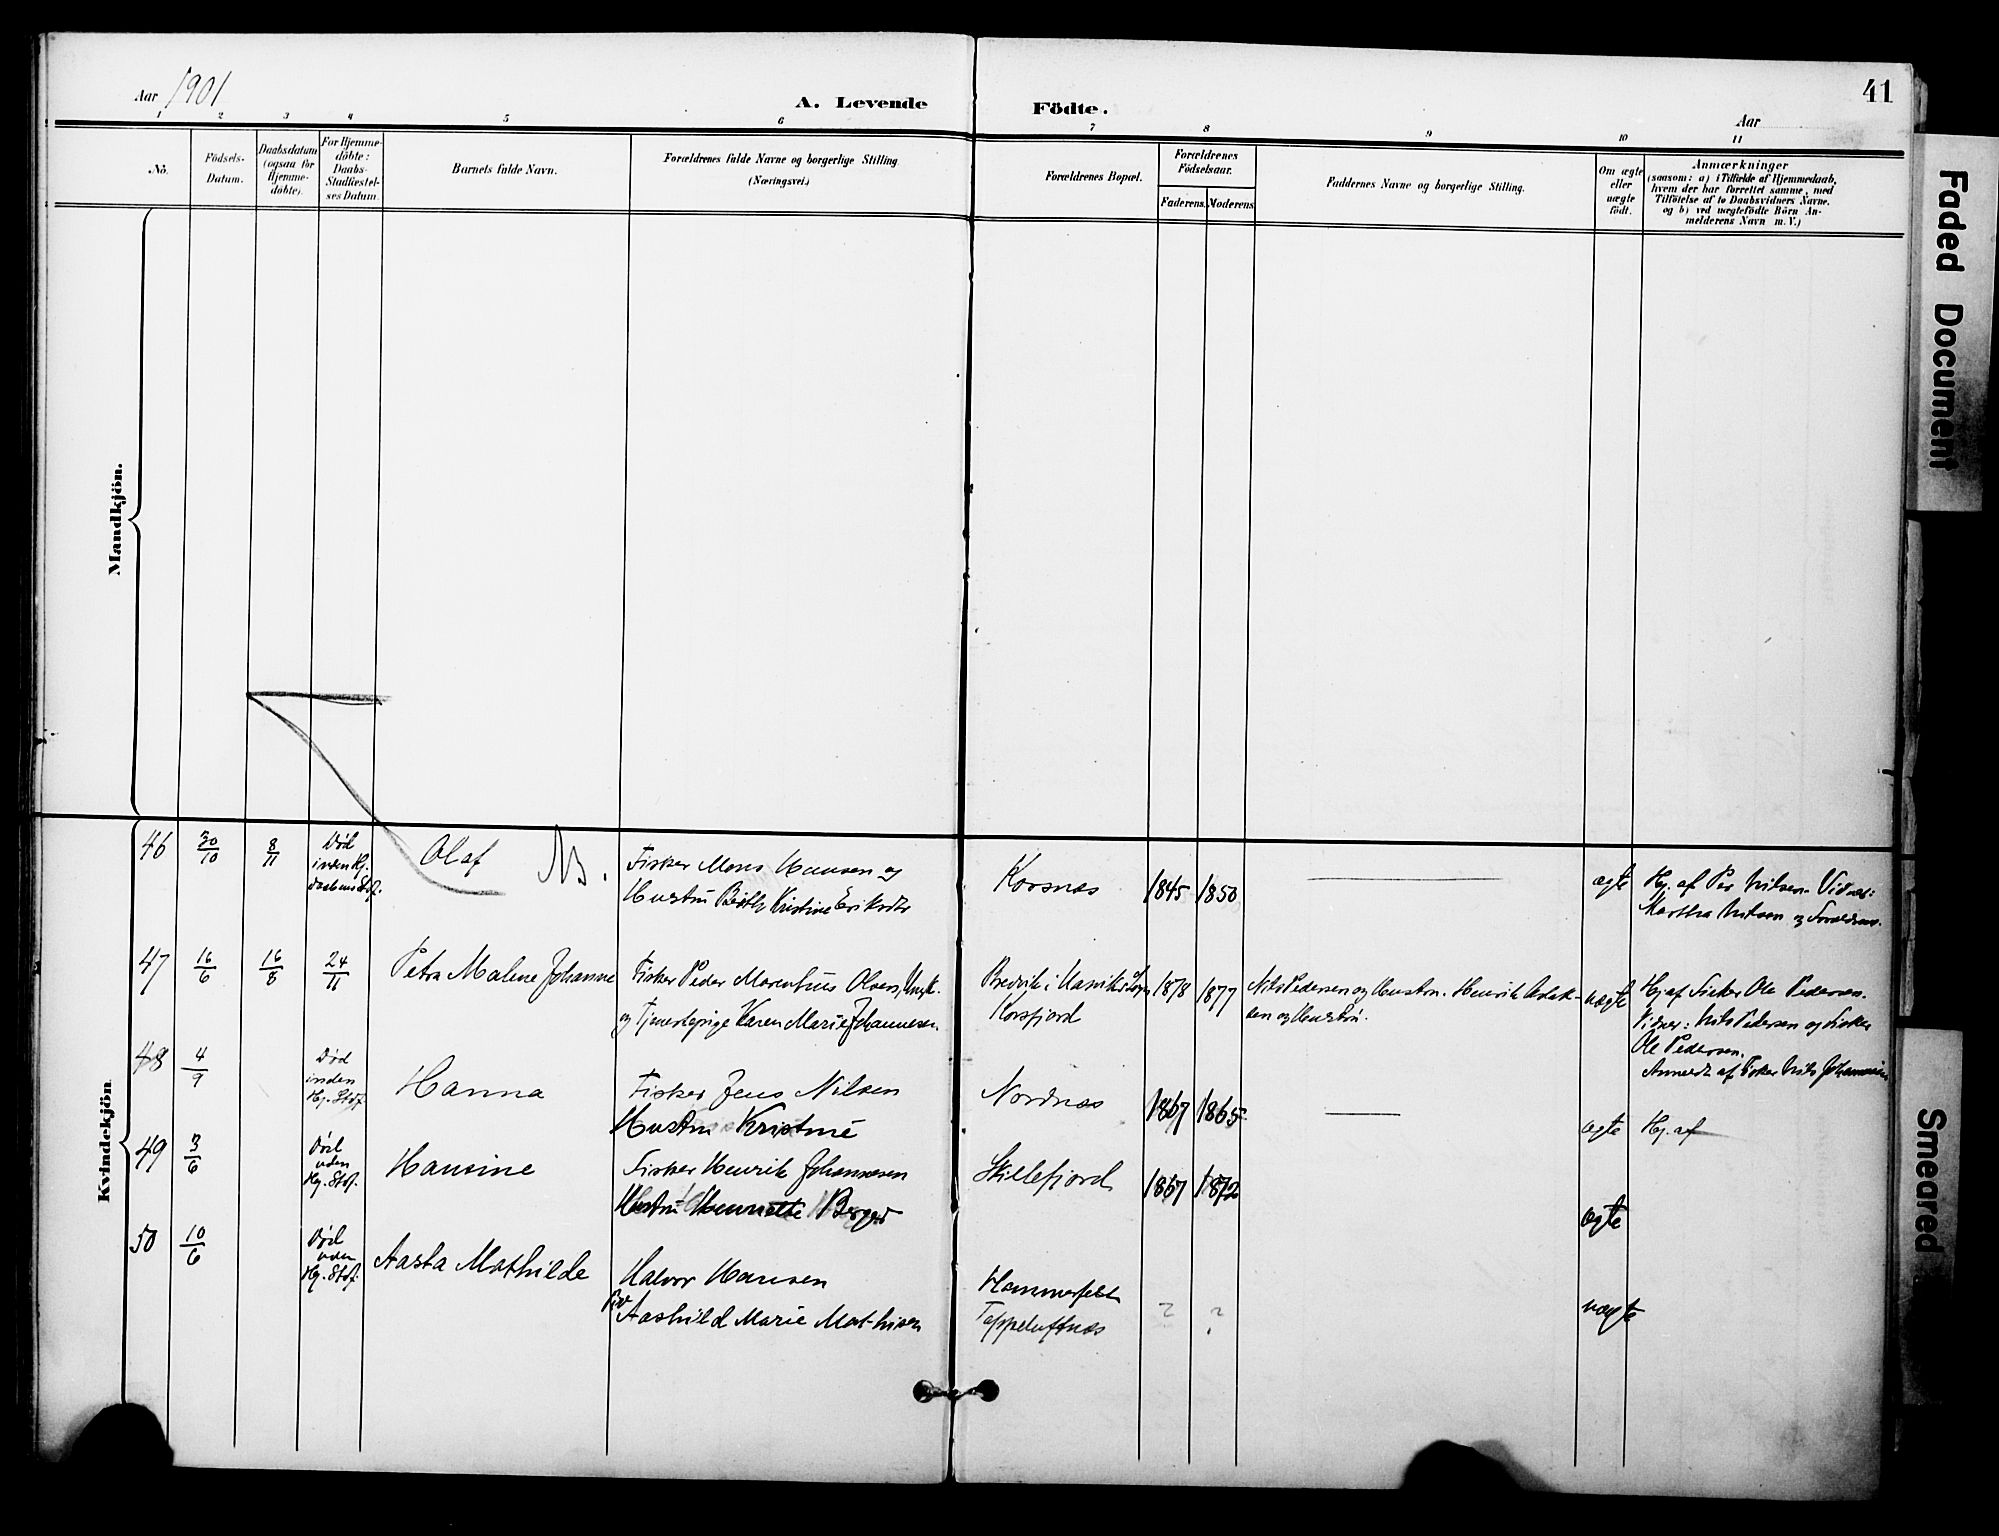 41
Aar 1901
A. Levende Födte.
Aar
1 2 3 4 5 6 7 8 9 10 11
No.
Födsels-
Datum.
Daabsdatum
(ogsaa for
Hjemme-
döbte).
For Hjemme-
döbte:
Daabs-
Stadfæstel-
ses Datum.
Barnets fulde Navn.
Forældrenes fulde Navne og borgerlige Stilling
(Næringsvei.)
Forældrenes Bopæl.
Forældrenes
Födselsaar.
Faderens. Moderens.
Faddernes Navne og borgerlige Stilling.
Om ægte
eller
uægte
födt.
Anmærkninger
(saasom: a) i Tilfælde af Hjemmedaab,
hvem der har forrettet samme, med
Tilföielse af to Daabsvidners Navne.
og b) ved uægtefödte Börn An-
melderens Navn m. V.)
Mandkjön.
Kvindekjön.
46 30/10 8/11
Død
inden Hj.
daabens Stdf.
Olaf NB.
Fisker Mons Hansen og
Hustru Kristine Eriksdtr
Korsnæs
1845 1850
ægte
Hj. af Per Nilsen. Vidner:
Martha Nilsen og Forældrene.
47 16/6 16/8 24/11
Petra Malene Johanne
Fisker Peder Marenthius Olsen, Ungk.
og Tjenestepige Karen Marie Johannesen
Korsfjord
1878 1877
Nils Pedersen og Hustru. Henrik Aslak-
sen og Hustru.
uægte
Hj. af Fisker Ole Pedersen.
Vidner: Nils Pedersen og Fisker
Ole Pedersen.
Anmeldt af Fisker Nils Johannesen
48 4/9
Død
inden
Hj. Stdf.
Hanna
Fisker Jens Nilsen
Hustru Kristine
Nordnæs
1867 1865
ægte
Hj. af
49 3/6
Død
uden
Hj. Stdf.
Hansine
Fisker Henrik Johannesen
Hustru Henriette Berger
Skillefjord
1867 1872
ægte
50 10/6
Død
uden
Hj. Stdf.
Aasta Mathilde
Halvor Hansen
Aashild Marie Mathisen
Hammerfest
Toppeluftnæs
? ?
uægte
Faded Document
Smeared